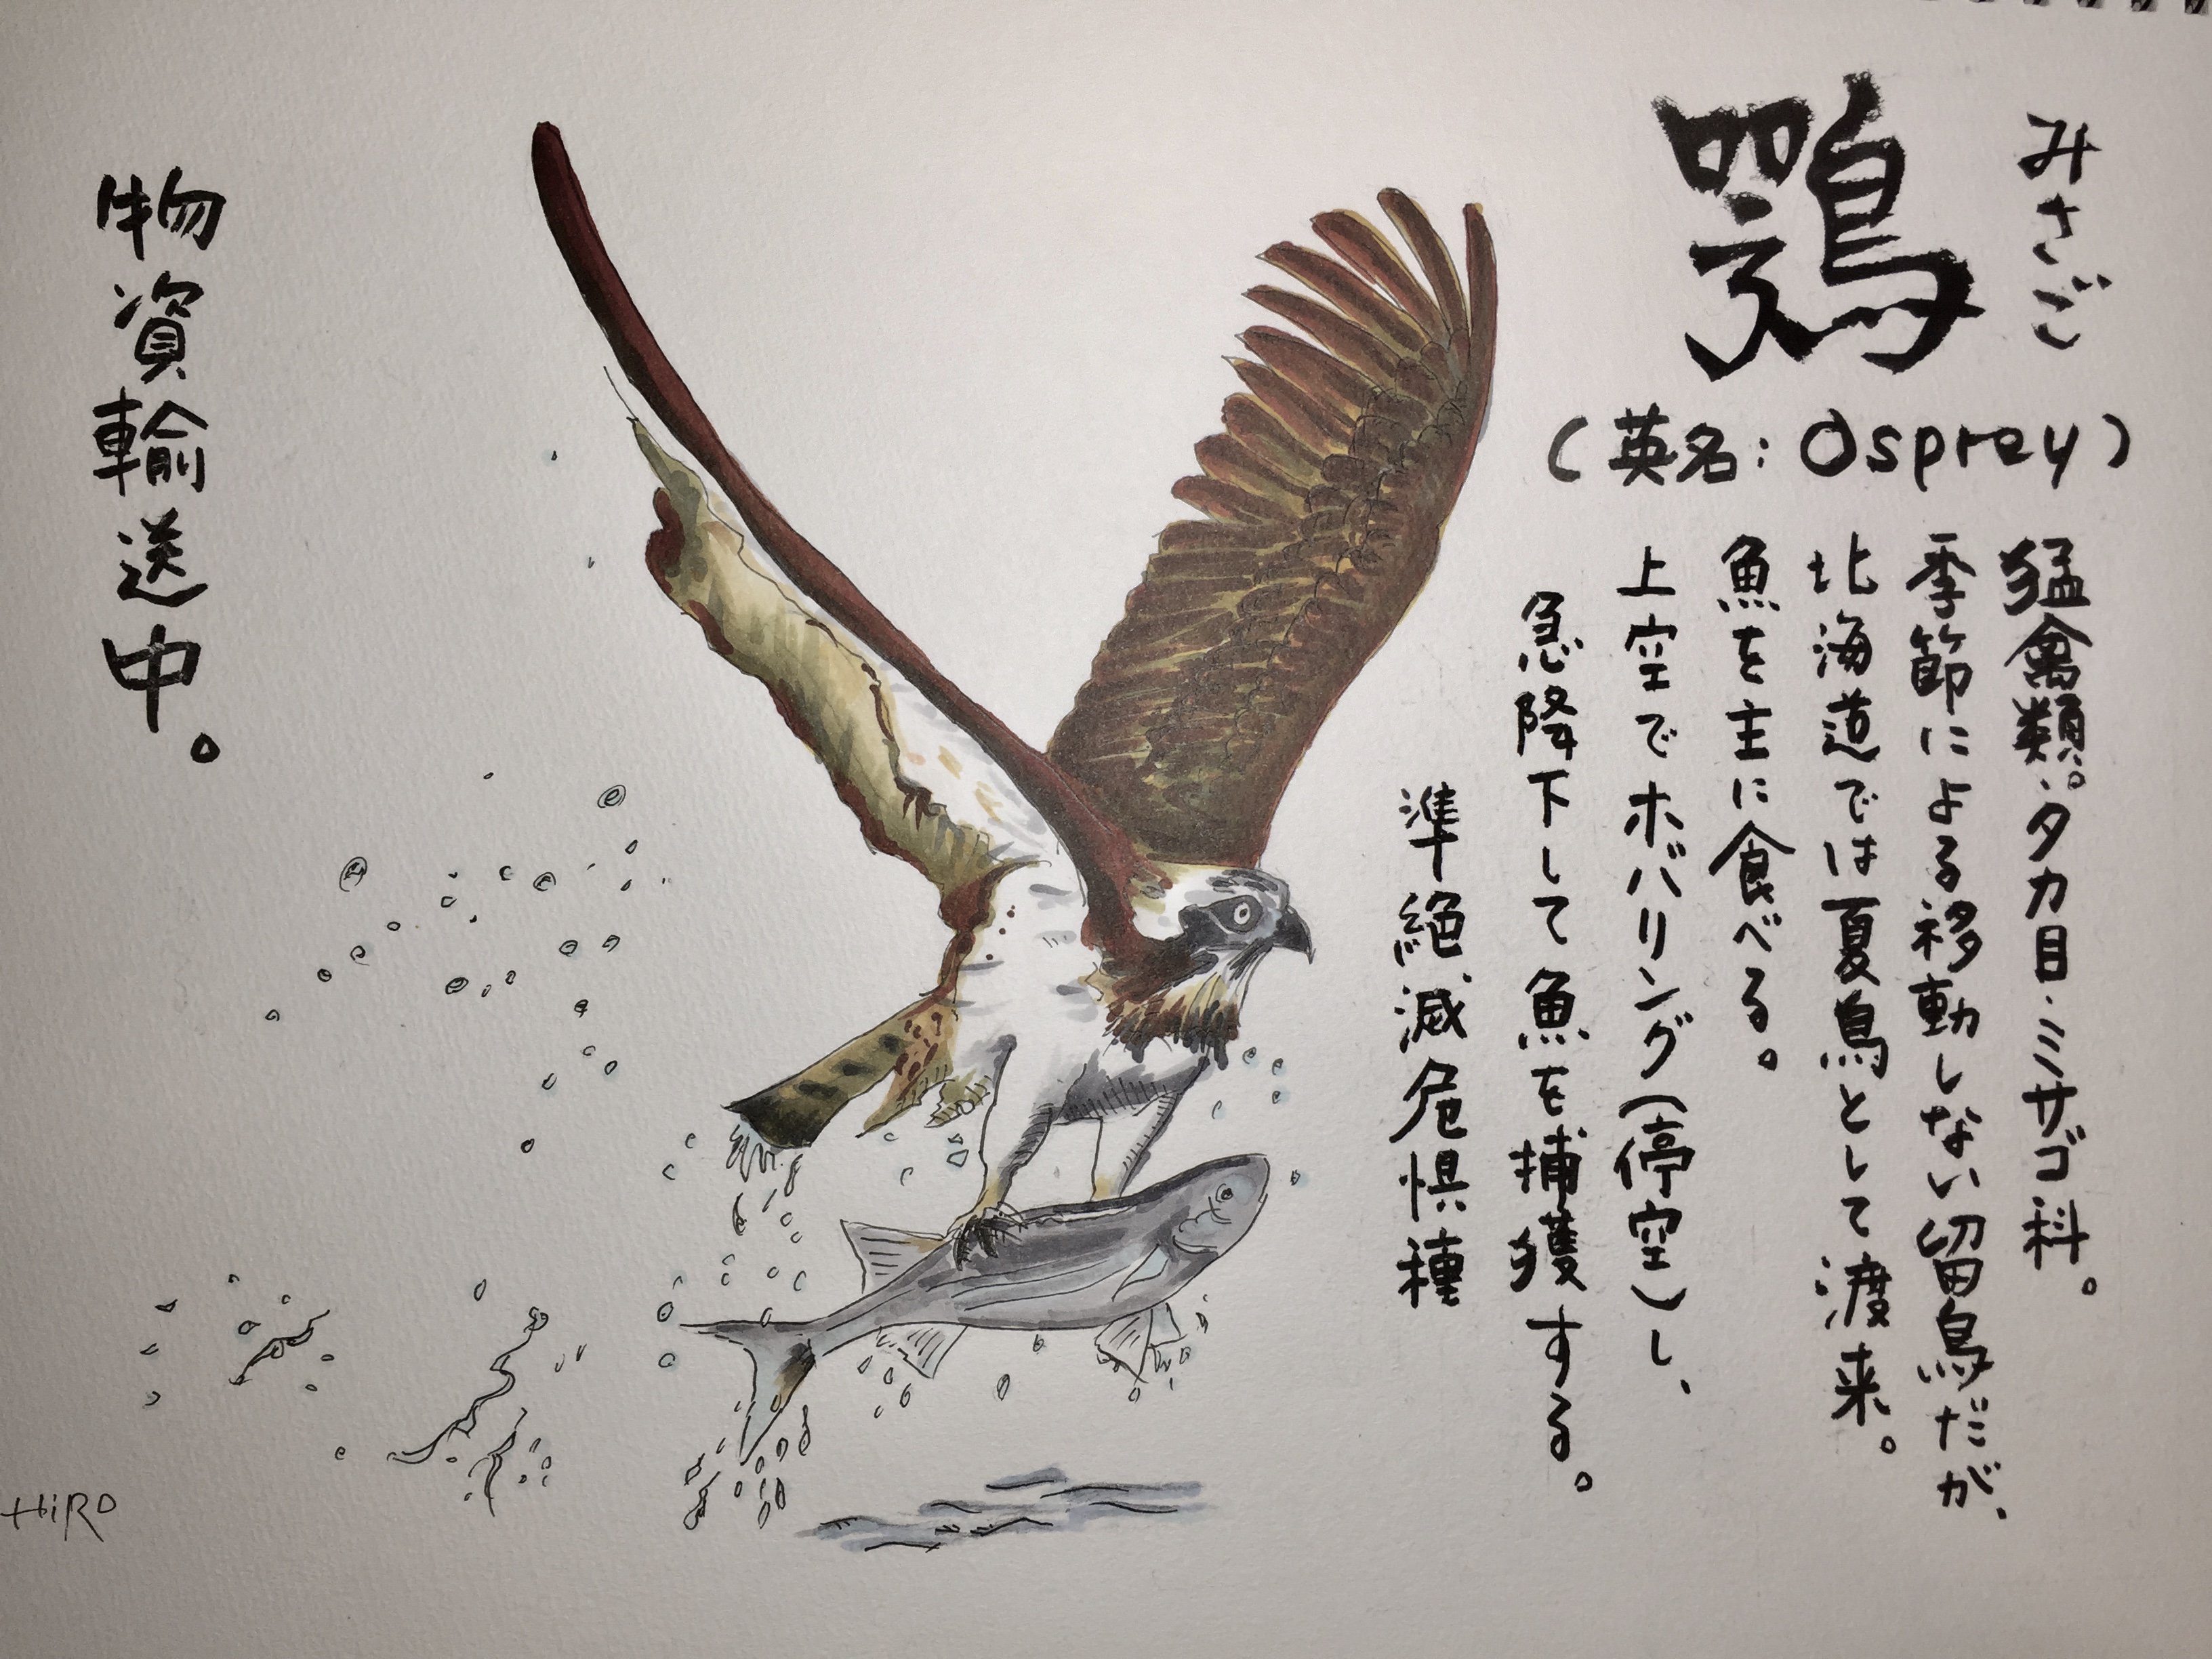 みさご
鶚
(英名:Osprey)
猛禽類。タカ目・ミサゴ科。
季節による移動しない留鳥だが、
北海道では夏鳥として渡来。
魚を主に食べる。
上空でホバリング(停空)し、
急降下して魚を捕獲する。
準絶滅危惧種
物資輸送中。
HiRO